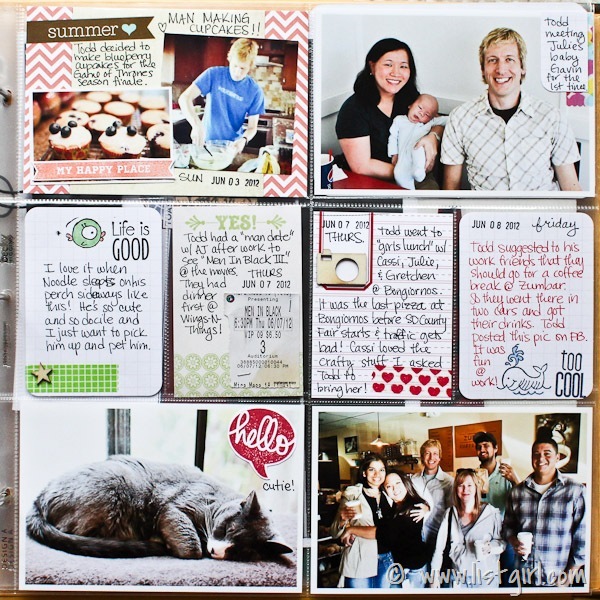 summer
MAN MAKING
CUPCAKES!!
Todd decided to
make blueberry
cupcakes for the
Game of Thrones
season finale.
MY HAPPY PLACE
SUN JUN 03 2012
Todd
meeting
Julie's
baby
Gavin
for the
1st time.
Life is
GOOD
I love it when
Noodle sleeps on his
perch sideways like
this! He's so cute
and so docile and
I just want to pick
him up and pet him.
YES!
Todd had a "man date"
w/ AJ after work to
see "Men In Black III"
@ the movies. THURS
They had JUN 07 2012
dinner
first @
Wings-N-
Things!
Presenting
MEN IN BLACK
6:30PM Thu 06/07/12
VIP 09 $6.50
3
Auditorium
06/07/2012 06:30 PM
JUN 07 2012
THURS.
Todd went to
"girls lunch" w/
Cassi, Julie,
& Gretchen
@ Bongiornos.
It was the last pizza at
Bongiornos before SD County
Fair starts & traffic gets
bad! Cassi loved the
crafty stuff I asked
Todd to
bring her!
JUN 08 2012 friday
Todd suggested to his
work friends that they
should go for a coffee
break @ Zumbar.
So they went there in
two cars and got
their drinks. Todd
posted this pic on FB.
It was
fun
@
work!
too
COOL
hello
cutie!
DESIGN A
© www.listgirl.com